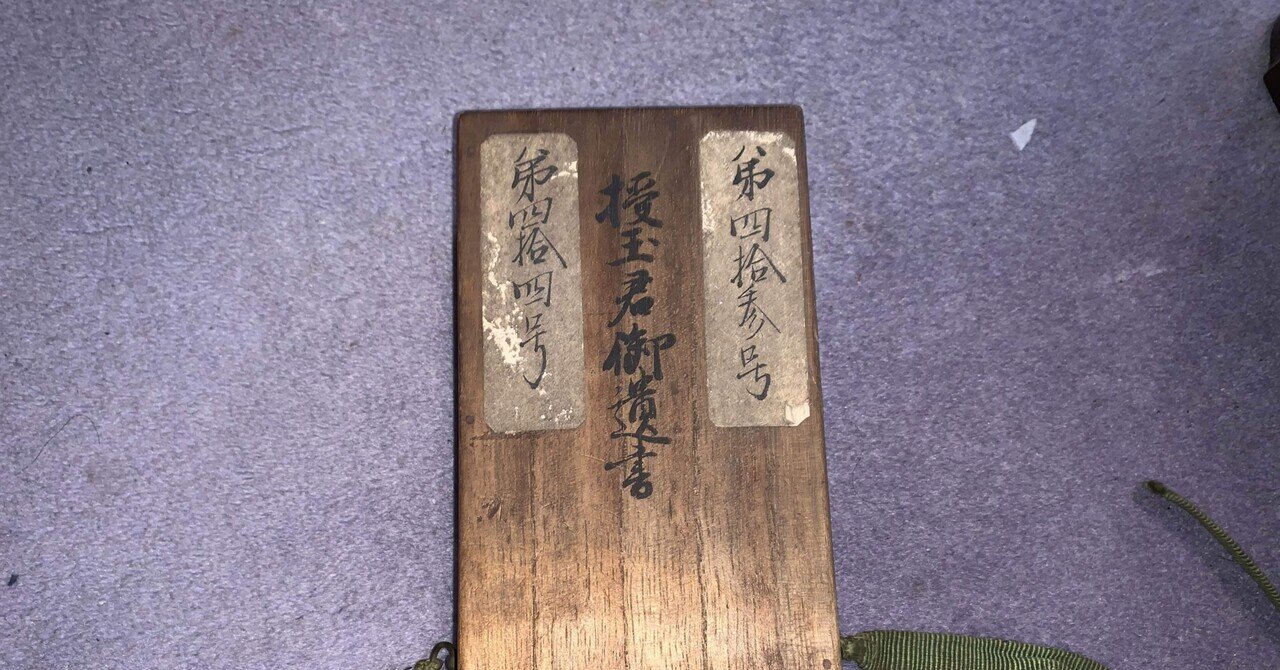 第四拾参号
授玉君御遺書
第四拾四号